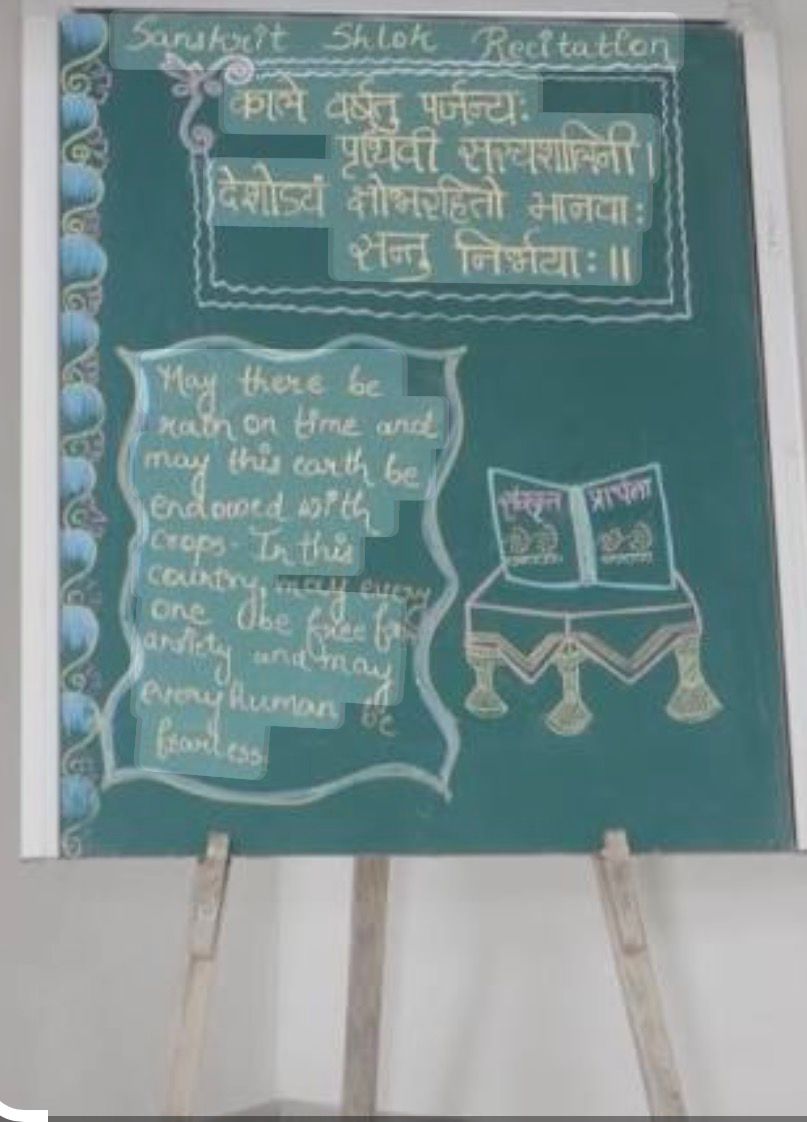 Sanskrit Shlok Recitation
काले वर्षतु पर्जन्यः
पृथिवी सस्यशालिनी।
देशोऽयं क्षोभरहितो मानवाः
सन्तु निर्भयाः॥
May there be
rain on time and
may this earth be
endowed with
crops. In this
country, may every
one be free from
anxiety and may
every human be
fearless.
संस्कृत प्रार्थना